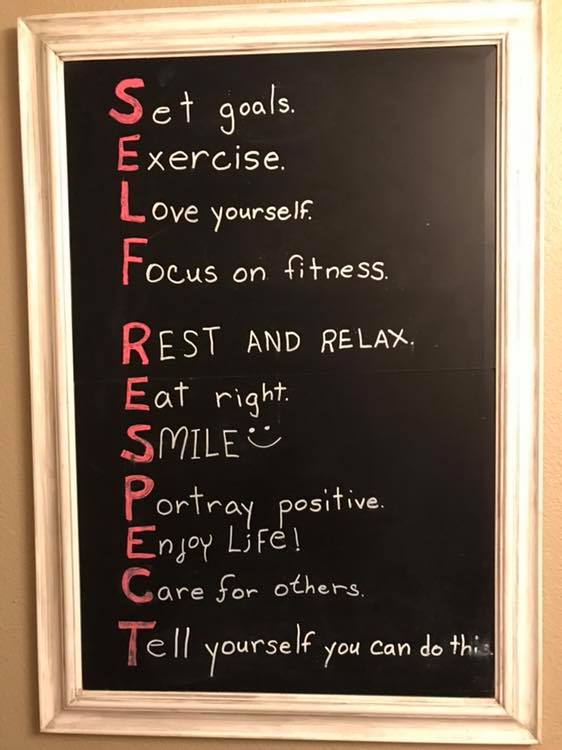 Set goals.
Exercise.
Love yourself.
Focus on fitness.
REST AND RELAX.
Eat right.
SMILE
Portray positive.
Enjoy Life!
Care for others.
Tell yourself you can do this